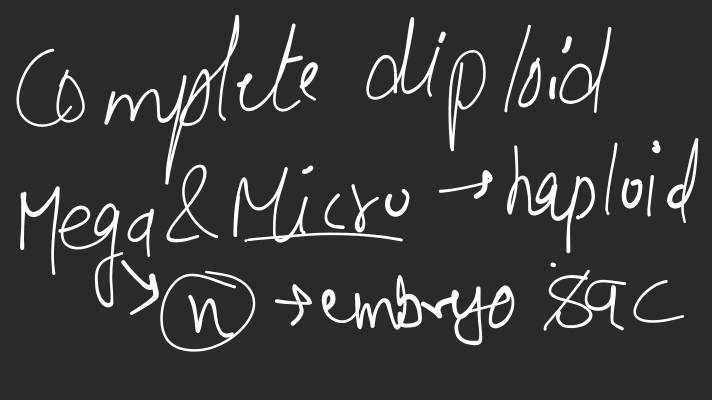 Complete diploid
Mega & Micro → haploid
↘ n → embryo sac